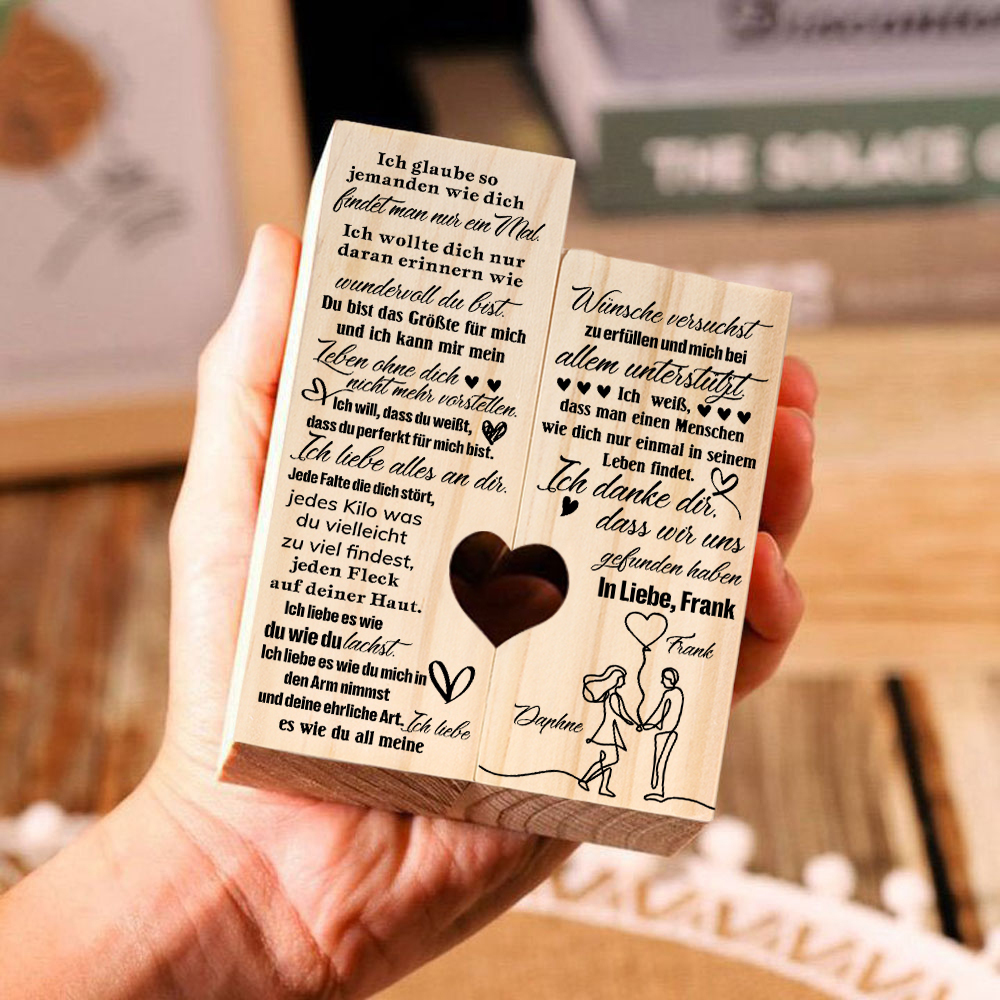 Ich glaube so
jemanden wie dich
findet man nur ein Mal.
Ich wollte dich nur
daran erinnern wie
wundervoll du bist.
Du bist das Größte für mich
und ich kann mir mein
Leben ohne dich
nicht mehr vorstellen.
Ich will, dass du weißt,
dass du perferkt für mich bist.
Ich liebe alles an dir.
Jede Falte die dich stört,
jedes Kilo was
du vielleicht
zu viel findest,
jeden Fleck
auf deiner Haut.
Ich liebe es wie
du wie du lachst.
Ich liebe es wie du mich in
den Arm nimmst
und deine ehrliche Art. Ich liebe
es wie du all meine
Wünsche versuchst
zu erfüllen und mich bei
allem unterstützt,
Ich weiß,
dass man einen Menschen
wie dich nur einmal in seinem
Leben findet.
Ich danke dir,
dass wir uns
gefunden haben
In Liebe, Frank
Frank
Daphne
THE SOLACE